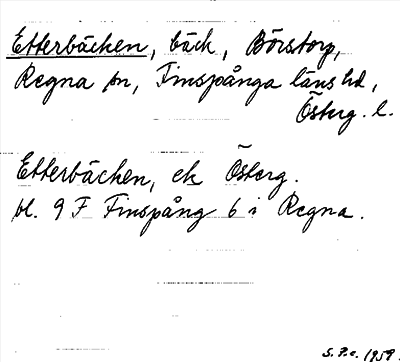 Etterbäcken, bäck, Börstorp,
Regna sn, Finspånga läns hd,
Österg. l.
Etterbäcken, ek Österg.
bl. 9 F Finspång 6 i Regna.
S. P-c. 1959.